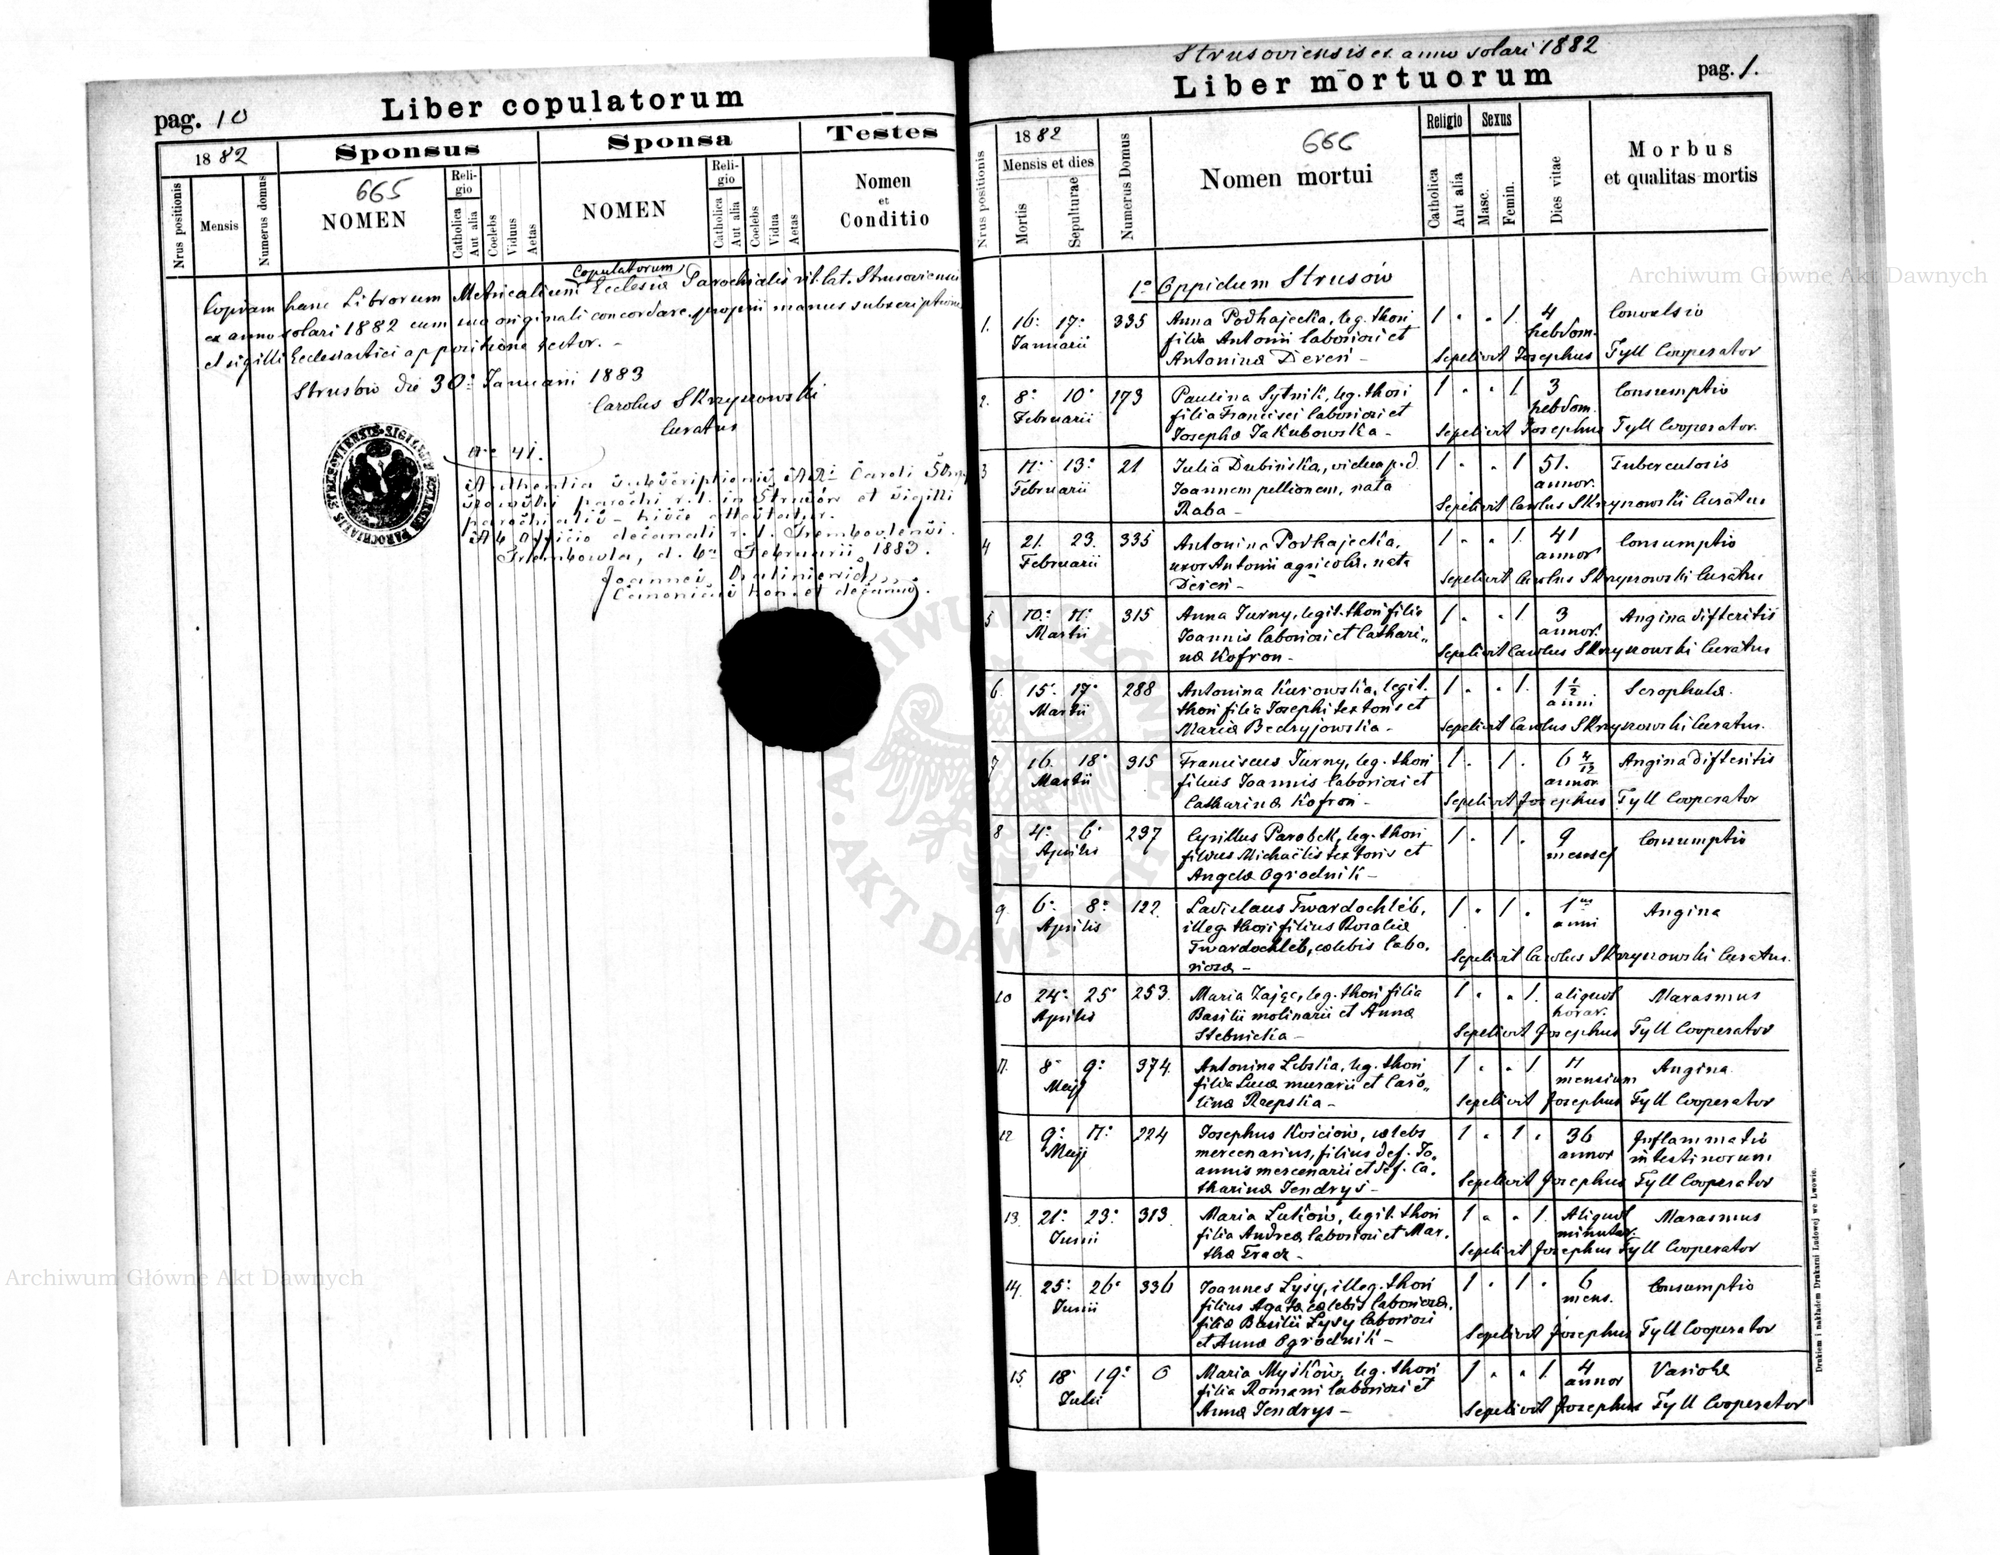 pag. 10
Liber copulatorum
1882
Sponsus
Sponsa
Testes
Nrus positionis
Mensis
Numerus domus
665
NOMEN
Religio
Catholica
Aut alia
Coelebs
Viduus
Aetas
NOMEN
Religio
Catholica
Aut alia
Coelebs
Vidua
Aetas
Nomen
et
Conditio
Copulatorum
Copiam hanc Librorum Metricalium Ecclesiæ Parochialis rit. lat. Strusoviensis
ex anno solari 1882 cum suo originali concordare, proprii manus subscriptione
et sigilli Ecclesiastici appositione testor. -
Strusów die 30a Januarii 1883
Carolus Skrzyszowski
Curatus
No 41.
Authentia subscriptionis
parochi r. l. in Strusów et sigilli
parochialis - hisce attestatur.
Ab Officio decanali r. l. Trembovlensi.
Trembowla, d. 6a Februarii 1883.
Joannes
Canonicus hon. et decanus.
Strusoviensis ex anno solari 1882
Liber mortuorum
pag. 1.
Nrus positionis
1882
Mensis et dies
Mortis
Sepulturae
Numerus Domus
666
Nomen mortui
Religio
Catholica
Aut alia
Sexus
Masc.
Femin.
Dies vitae
Morbus
et qualitas mortis
1o Oppidum Strusów
1. 16. 17. 335 Anna Podhajecka, leg. thori 1 " " 1. 4 Convulsio
Januarii filia Antonii laboriosi et hebdom.
Antoninæ Dereń - Sepelivit Josephus Tyll Cooperator
2. 8. 10. 173 Paulina Sytnik, leg. thori 1 " " 1. 3 Consumptio
Februarii filia Francisci laboriosi et hebdom.
Josephæ Jakubowska - Sepelivit Josephus Tyll Cooperator.
3 11. 13. 21 Julia Dubińska, vidua p. d. 1 " " 1 51. Tuberculosis
Februarii Joannem pellionem, nata annor.
Raba - Sepelivit Carolus Skrzyszowski Curatus
4 21. 23. 335 Antonina Podhajecka, 1 " " 1. 41 Consumptio
Februarii uxor Antonii agricolæ, nata annor
Dereń - Sepelivit Carolus Skrzyszowski Curatus
5 10. 11. 315 Anna Jurny, legit. thori filia 1 " " 1 3 Angina difteritis
Martii Joannis laboriosi et Cathari- annor.
næ Kofron - Sepelivit Carolus Skrzyszowski Curatus
6. 15. 17. 288 Antonina Kurowska, legit. 1 " " 1. 1 1/2 Scrophulæ.
Martii thori filia Josephi textoris et anni.
Mariæ Bedryjowska - Sepelivit Carolus Skrzyszowski Curatus.
7 16. 18. 315 Franciscus Jurny, leg. thori 1 " 1 " 6 4/12 Angina difteritis
Martii filius Joannis laboriosi et annor.
Catharinæ Kofron - Sepelivit Josephus Tyll Cooperator
8 4. 6. 297 Cyrillus Parobek, leg. thori 1 " 1 " 9 Consumptio
Aprilis filius Michaëlis textoris et menses
Angelæ Ogrodnik -
9. 6. 8. 122. Ladislaus Twardochléb, 1 " 1 " 1us Angina
Aprilis illeg. thori filius Rosaliæ anni
Twardochléb, cælebis labo-
riosæ - Sepelivit Carolus Skrzyszowski Curatus.
10 24. 25. 253. Maria Zając, leg. thori filia 1 " " 1. aliquot Marasmus
Aprilis Basilii molinarii et Annæ horar.
Stebnicka - Sepelivit Josephus Tyll Cooperator
11. 8. 9. 374. Antonina Lebska, leg. thori 1 " " 1 11 Angina
Maji filia Lucæ murarii et Caro- mensium
linæ Rzepska - Sepelivit Josephus Tyll Cooperator
12 9. 11. 224 Josephus Kościów, cælebs 1 " 1 " 36 Inflammatio
Maji mercenarius, filius def. Jo- annor intestinorum
annis mercenarii et def. Ca-
tharinæ Jendryś - Sepelivit Josephus Tyll Cooperator
13. 21. 23. 313. Maria Lulków, legit. thori 1 " " 1. Aliquot Marasmus
Junii filia Andreæ laboriosi et Mar- minutar.
thæ Tracz - Sepelivit Josephus Tyll Cooperator
14. 25. 26. 336 Joannes Lysy, illeg. thori 1 " 1 " 6 Consumptio
Junii filius Agatæ cælebis laboriosæ, mens.
filiæ Basilii Lysy laboriosi
et Annæ Ogrodnik - Sepelivit Josephus Tyll Cooperator
15. 18. 19. 6 Maria Myśków, leg. thori 1 " " 1. 4 Variolæ
Julii filia Romani laboriosi et annor
Annæ Jendrys - Sepelivit Josephus Tyll Cooperator
Drukiem i nakładem Drukarni Ludowej we Lwowie.
Archiwum Główne Akt Dawnych
Archiwum Główne Akt Dawnych